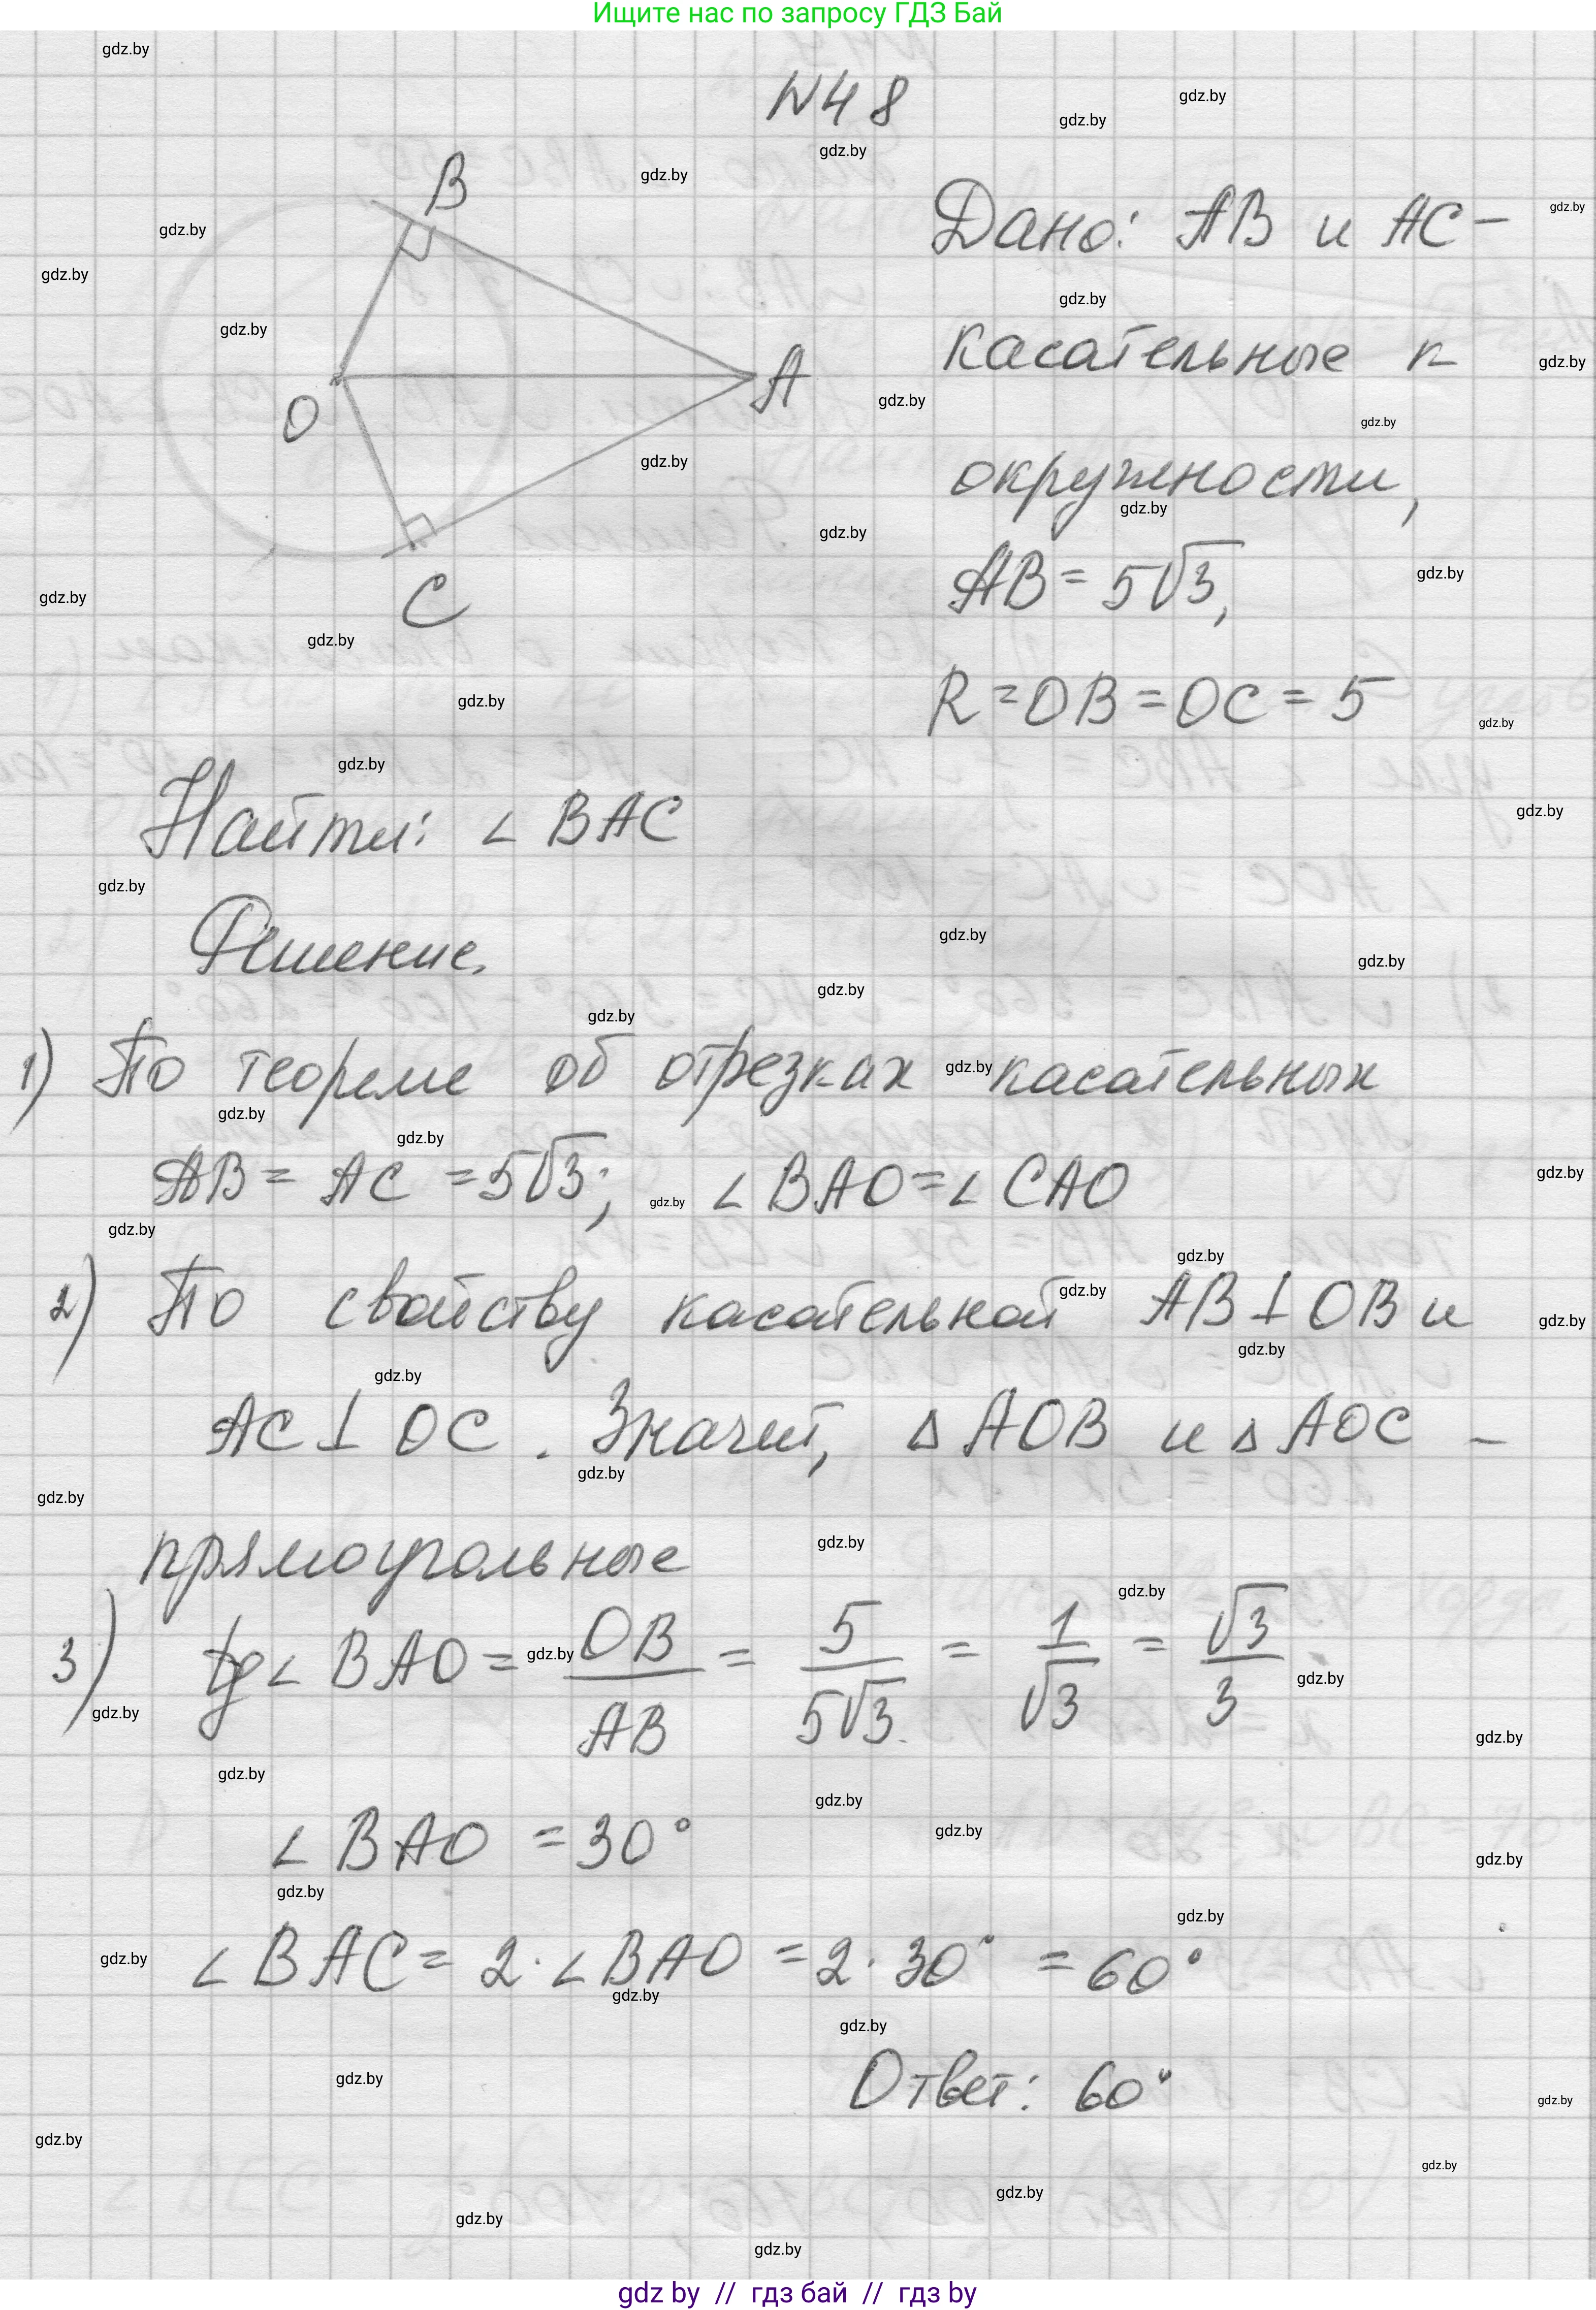 Ищите нас по запросу ГДЗ Бай
N48
B
O
A
C
Дано: AB и AC –
касательные к
окружности,
AB = 5√3,
R = OB = OC = 5
Найти: ∠ BAC
Решение.
1) По теореме об отрезках касательных
AB = AC = 5√3; ∠ BAO = ∠ CAO
2) По свойству касательной AB ⊥ OB и
AC ⊥ OC. Значит, Δ AOB и Δ AOC –
прямоугольные
3) tg ∠ BAO = OB/AB = 5/5√3 = 1/√3 = √3/3
∠ BAO = 30°
∠ BAC = 2 · ∠ BAO = 2 · 30° = 60°
Ответ: 60°
gdz by // гдз бай // гдз by